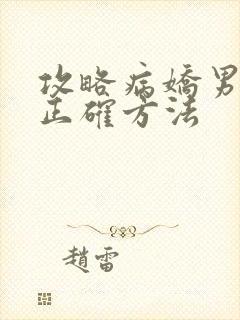 攻略病嬌男
正確方法
趙雷